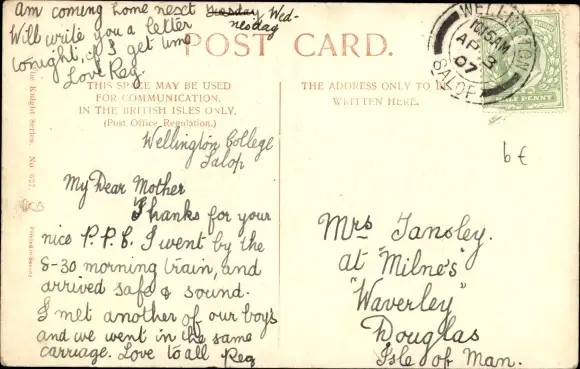 am coming home next Tuesday Wed-
nesday
Will write you a letter
tonight, if I get time
Love Reg.
POST CARD.
THIS SPACE MAY BE USED
FOR COMMUNICATION,
IN THE BRITISH ISLES ONLY.
(Post Office Regulation.)
THE ADDRESS ONLY TO BE
WRITTEN HERE.
Knight Series. No
WELLINGTON
10.15AM
AP 3
07
SALOP
HALF PENNY
6€
Wellington College
Salop
My Dear Mother
Thanks for your
nice P.P.C. I went by the
8-30 morning train, and
arrived safe & sound.
I met another of our boys
and we went in the same
carriage. Love to all Reg
Mrs Tansley.
at "Milne's"
"Waverley"
Douglas
Isle of Man.